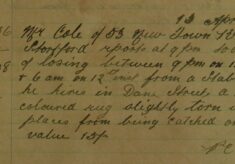 13 Apr
Mr Cole of 53 New Town
Stortford reports at 9 pm
of losing between 9 pm on
& 6 am on 12th inst from a Stab
he hires in Dane Street a
coloured rug slightly torn in
places from being patched on
value 15/-